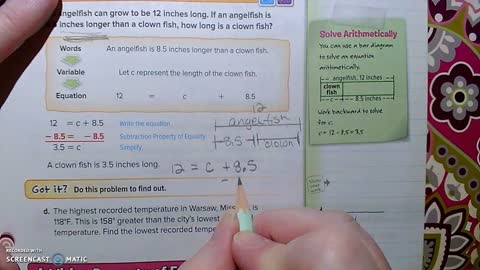 angelfish can grow to be 12 inches long. If an angelfish is
inches longer than a clown fish, how long is a clown fish?
Words
An angelfish is 8.5 inches longer than a clown fish.
Variable
Let c represent the length of the clown fish.
Equation 12 = c + 8.5
12 = c + 8.5 Write the equation.
– 8.5 = – 8.5 Subtraction Property of Equality
3.5 = c Simplify.
A clown fish is 3.5 inches long.
12
angelfish
8.5 clown
12 = c + 8.5
–
Got it? Do this problem to find out.
d. The highest recorded temperature in Warsaw,
118°F. This is 158° greater than the city's lowest
temperature. Find the lowest recorded
Solve Arithmetically
You can use a bar diagram
to solve an equation
arithmetically.
angelfish, 12 inches
clown
fish
c 8.5 inches
Work backward to solve
for c.
c = 12 – 8.5 = 3.5
Show
your
work
RECORDED WITH
SCREENCAST MATIC